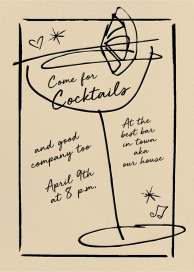 Come for
Cocktails
and good
company too
April 9th
at 8 p.m.
At the
best bar
in town
aka
our house